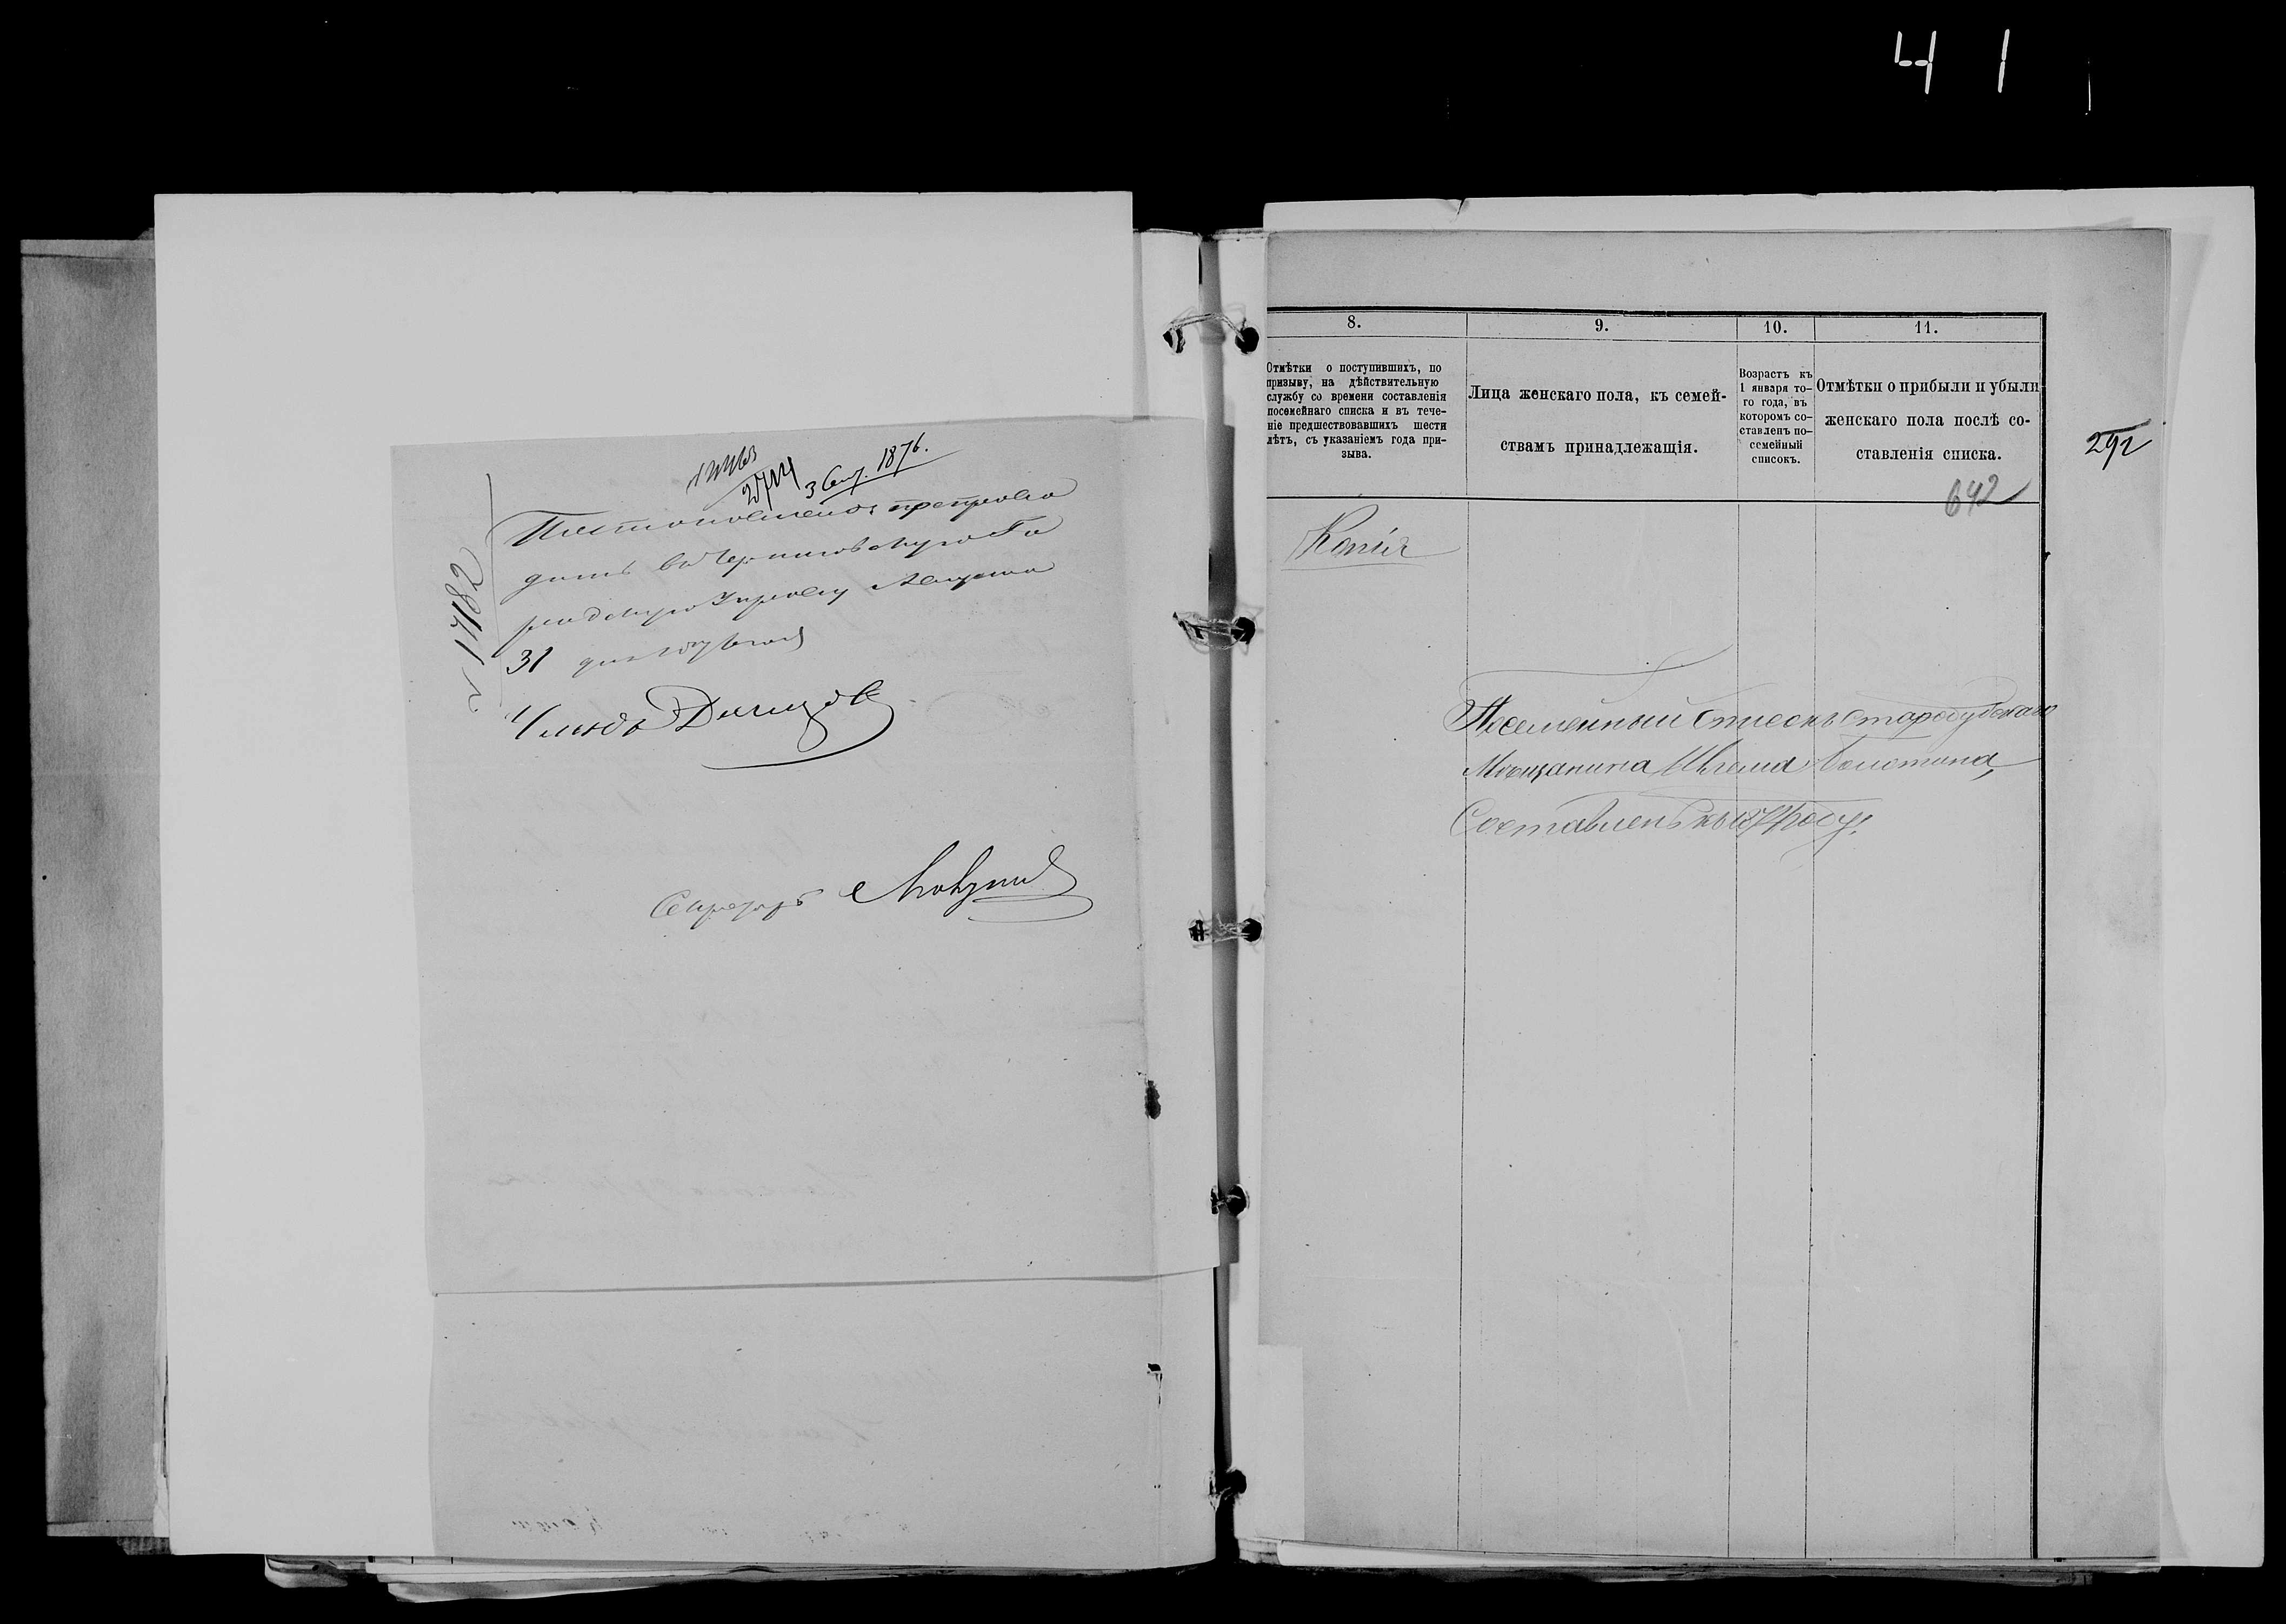 4 1
3 Сен. 1876.
Постановлено: препрово
дить въ Черниговскую Го
родскую Управу Августа
31 дня 1876 года
№ 1782
Членъ
Секретарь
8.
9.
10.
11.
Отмѣтки о поступившихъ, по
призыву, на дѣйствительную
службу со времени составленія
посемейнаго списка и въ тече-
ніе предшествовавшихъ шести
лѣтъ, съ указаніемъ года при-
зыва.
Лица женскаго пола, къ семей-
ствамъ принадлежащія.
Возрастъ къ
1 января то-
го года, въ
которомъ со-
ставленъ по-
семейный
списокъ.
Отмѣтки о прибыли и убыли
женскаго пола послѣ со-
ставленія списка.
292
642
Копія
Посемейный Списокъ Стародубскаго
Мѣщанина Шлема Болотина,
Составленъ къ году.